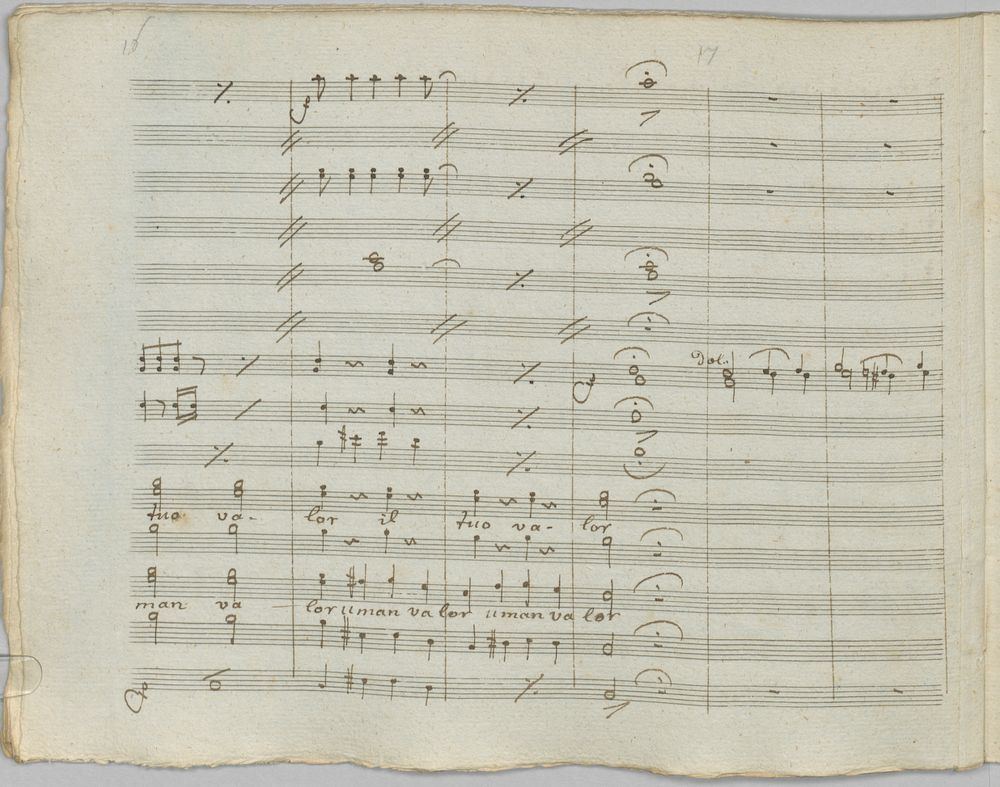 17
Dol.
tuo va- lor il tuo va- lor
man va lor uman va lor uman va lor